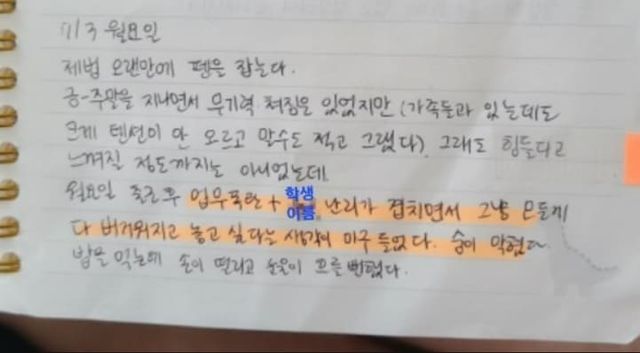 7/3 월요일
제법 오랜만에 펜을 잡는다.
금-주말을 지나면서 무기력 쳐짐은 있었지만 (가족들과 있는데도
크게 텐션이 안 오르고 말수도 적고 그랬다). 그래도 힘들다고
느껴질 정도까지는 아니었는데
월요일 출근 후 업무폭탄 + 학생이름 난리가 겹치면서 그냥 모든게
다 버거워지고 놓고 싶다는 생각이 마구 들었다. 숨이 막혔다
밥을 먹는데 손이 떨리고 눈물이 흐를 뻔했다.